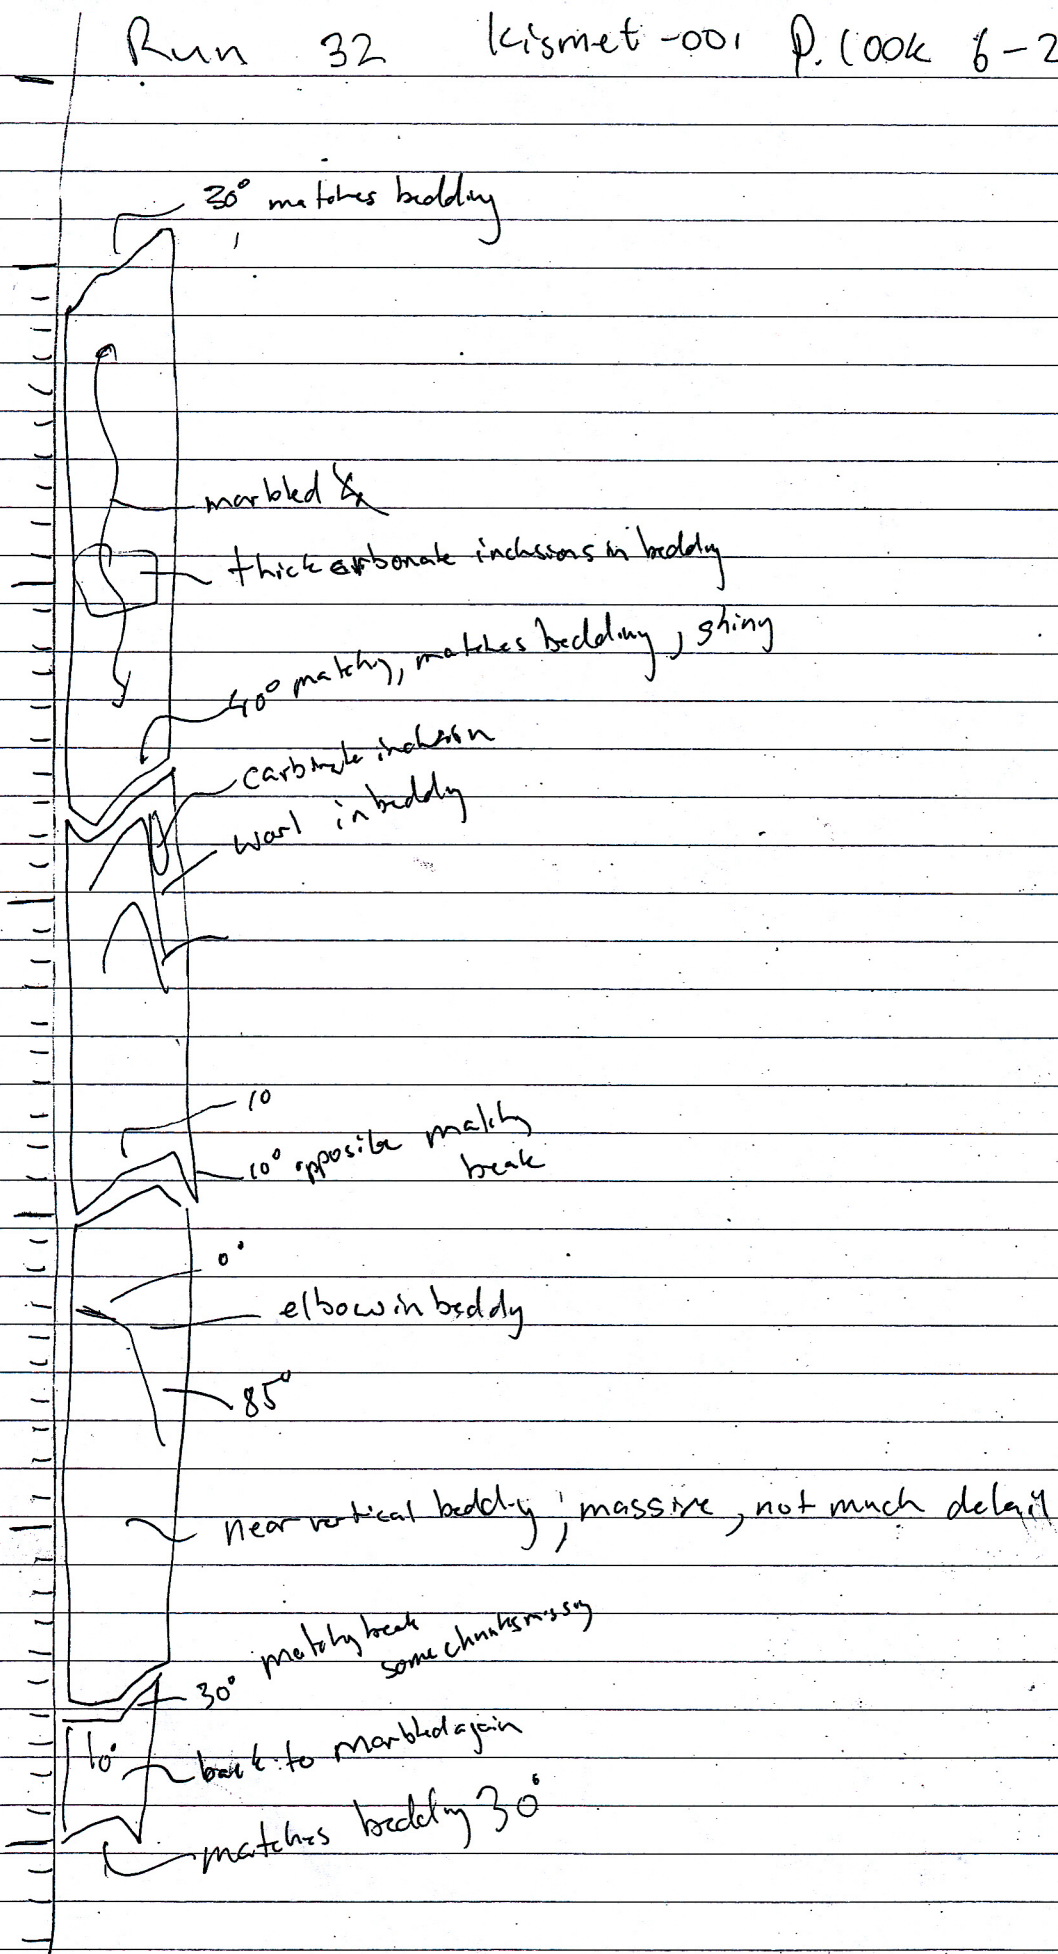 Run 32 Kismet-001 P. Cook 6-2
30° matches bedding
marbled
thick carbonate inclusions in bedding
40° matchy, matches bedding, shiny
carbonate inclusion
in bedding
10
10° opposite matchy
break
0°
elbow in bedding
85°
near vertical bedding, massive, not much detail
30° matchy break
some chunks missing
10°
back to marbled again
matches bedding 30°